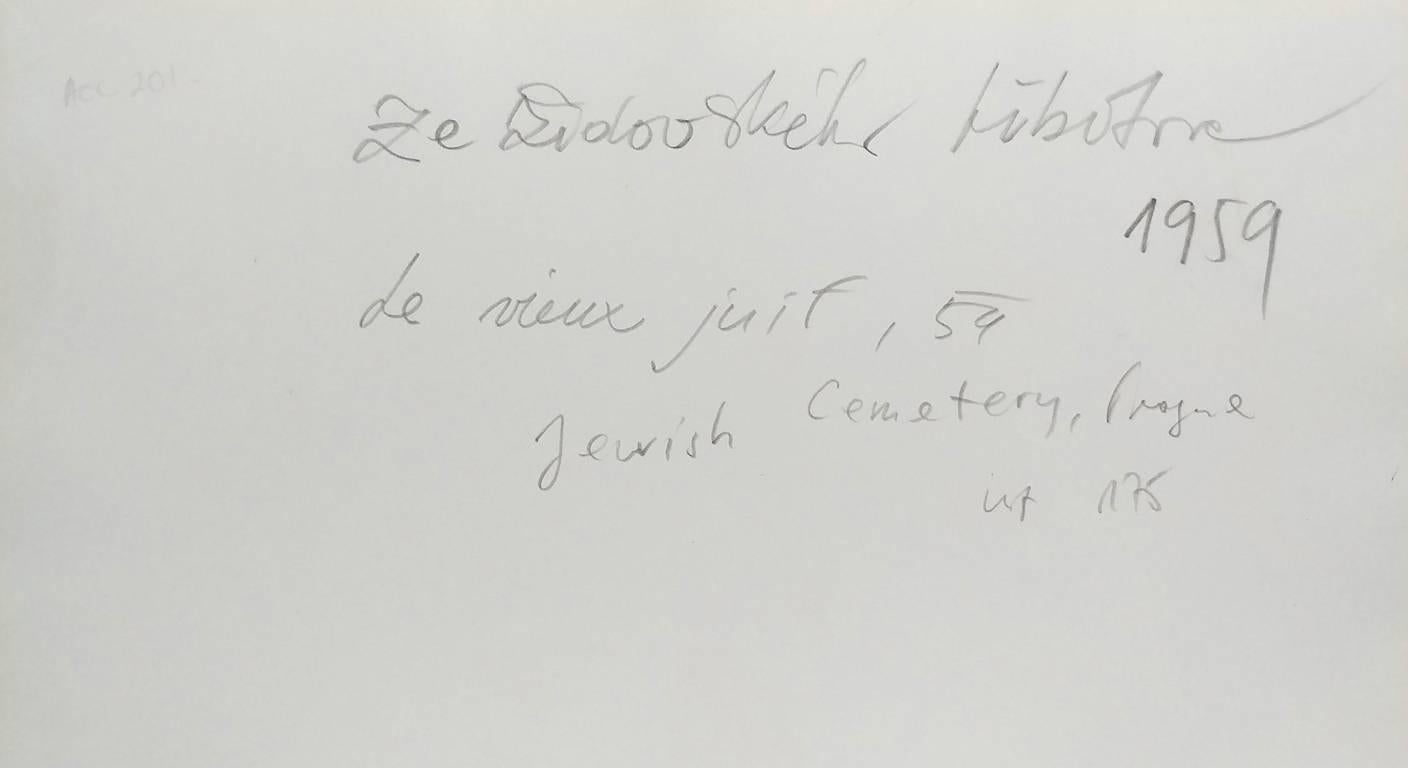 Acc 201
Ze Židovského hřbitova
1959
Le vieux juif, 59
Jewish Cemetery, Prague
175